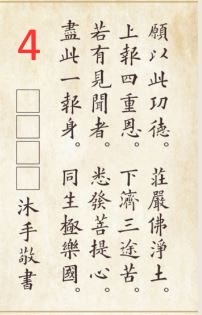 願以此功德。莊嚴佛淨土。
上報四重恩。下濟三途苦。
若有見聞者。悉發菩提心。
盡此一報身。同生極樂國。
4
□□□□沐手敬書